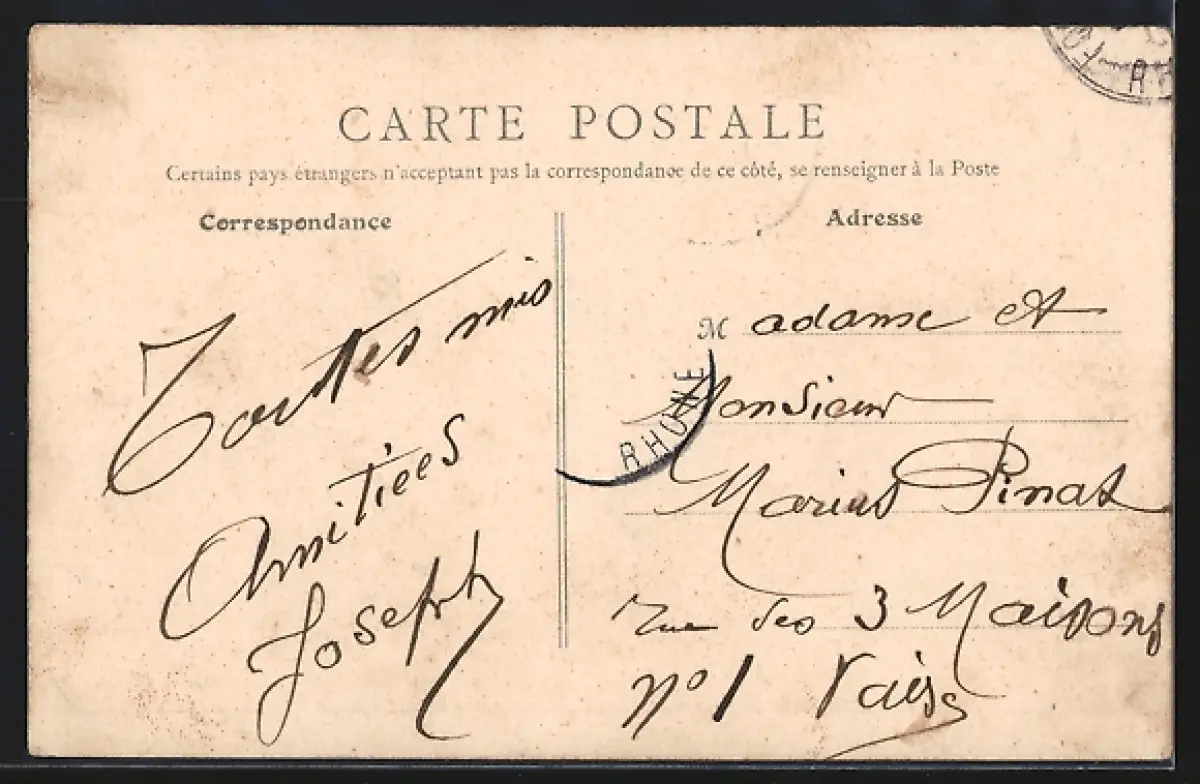 CARTE POSTALE
Certains pays étrangers n'acceptant pas la correspondance de ce côté, se renseigner à la Poste
Correspondance
Touttes mis
Amitiees
Joseph
Adresse
Madame et
Monsieur
Marius Pinat
rue des 3 Maisons
n° 1 Vaise
RHONE